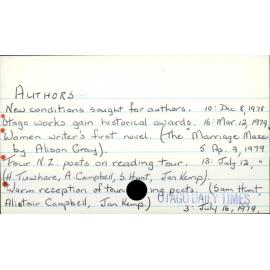 AUTHORS
New conditions sought for authors. 10: Dec 8, 1978
Otago works gain historical awards. 16: Mar. 12, 1979
Women writer's first novel. (The "Marriage Maze
by Alison Gray). 5: Ap. 9, 1979
Four N.Z. poets on reading tour. 13: July 12, "
(H. Tuwhare, A. Campbell, S. Hunt, Jan Kemp).
Warm reception of tour ng poets. (Sam Hunt
Alistair Campbell, Jan Kemp.) 3: July 16, 1979.
OTAGO DAILY TIMES